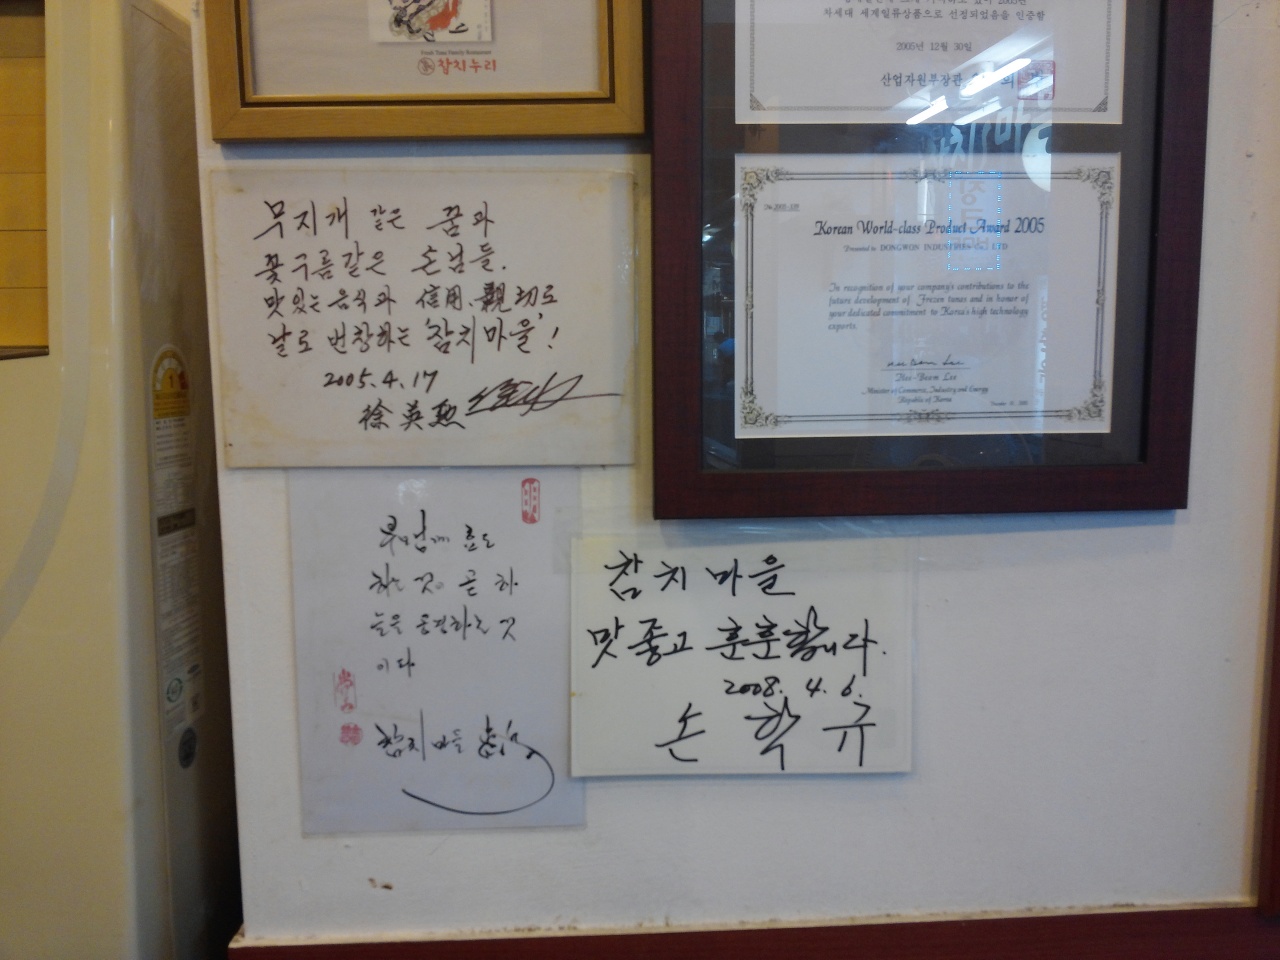 Fresh Tuna Family Restaurant
참치누리
차세대 세계일류상품으로 선정되었음을 인증함
2005년 12월 30일
산업자원부장관
무지개 같은 꿈과
꽃구름같은 손님들.
맛있는 음식과 信用、親切로
날로 번창하는 '참치마을'!
2005.4.17
徐英勳
Korean World-class Product Award 2005
Presented to DONGWON INDUSTRIES Co., LTD
In recognition of your company's contributions to the
future development of Frozen tunas and in honor of
your dedicated commitment to Korea's high technology
exports.
Hee-Beom Lee
Minister of Commerce, Industry and Energy
Republic of Korea
부모님께 효도
하는 것이 곧 하
늘을 공경하는 것
이다
참치마을
참치마을
맛좋고 훈훈합니다.
2008. 4. 6.
손학규